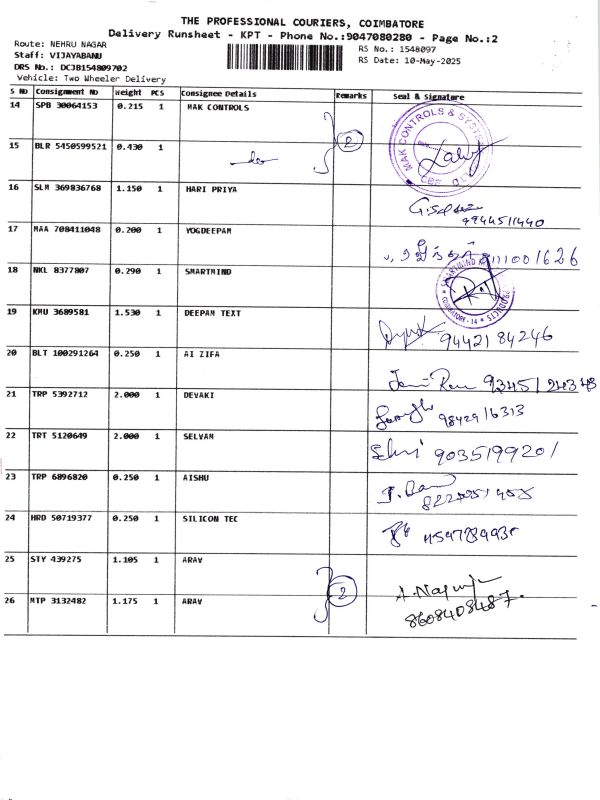 THE PROFESSIONAL COURIERS, COIMBATORE
Delivery Runsheet - KPT - Phone No.:9047080280 - Page No.:2
Route: NEHRU NAGAR
RS No.: 1548097
Staff: VIJAYABANU
RS Date: 10-May-2025
DRS No.: DCJB154809702
Vehicle: Two Wheeler Delivery
S No Consignment No Weight PCS Consignee Details Remarks Seal & Signature
14 SPB 30064153 0.215 1 MAK CONTROLS
2
MAK CONTROLS & SYSTE
CBE
15 BLR 5450599521 0.430 1 do
16 SLM 369836768 1.150 1 HARI PRIYA
9944511440
17 MAA 708411048 0.200 1 YOGDEEPAM
18 NKL 8377807 0.290 1 SMARTMIND
COIMBATORE - 14
PRODUCTS
19 KMU 3689581 1.530 1 DEEPAM TEXT
9442184246
20 BLT 100291264 0.250 1 AI ZIFA
21 TRP 5392712 2.000 1 DEVAKI
9842916313
22 TRT 5120649 2.000 1 SELVAM
9035199201
23 TRP 6896820 0.250 1 AISHU
24 HRD 50719377 0.250 1 SILICON TEC
25 STY 439275 1.105 1 ARAV
2
26 MTP 3132482 1.175 1 ARAV
8608408487.